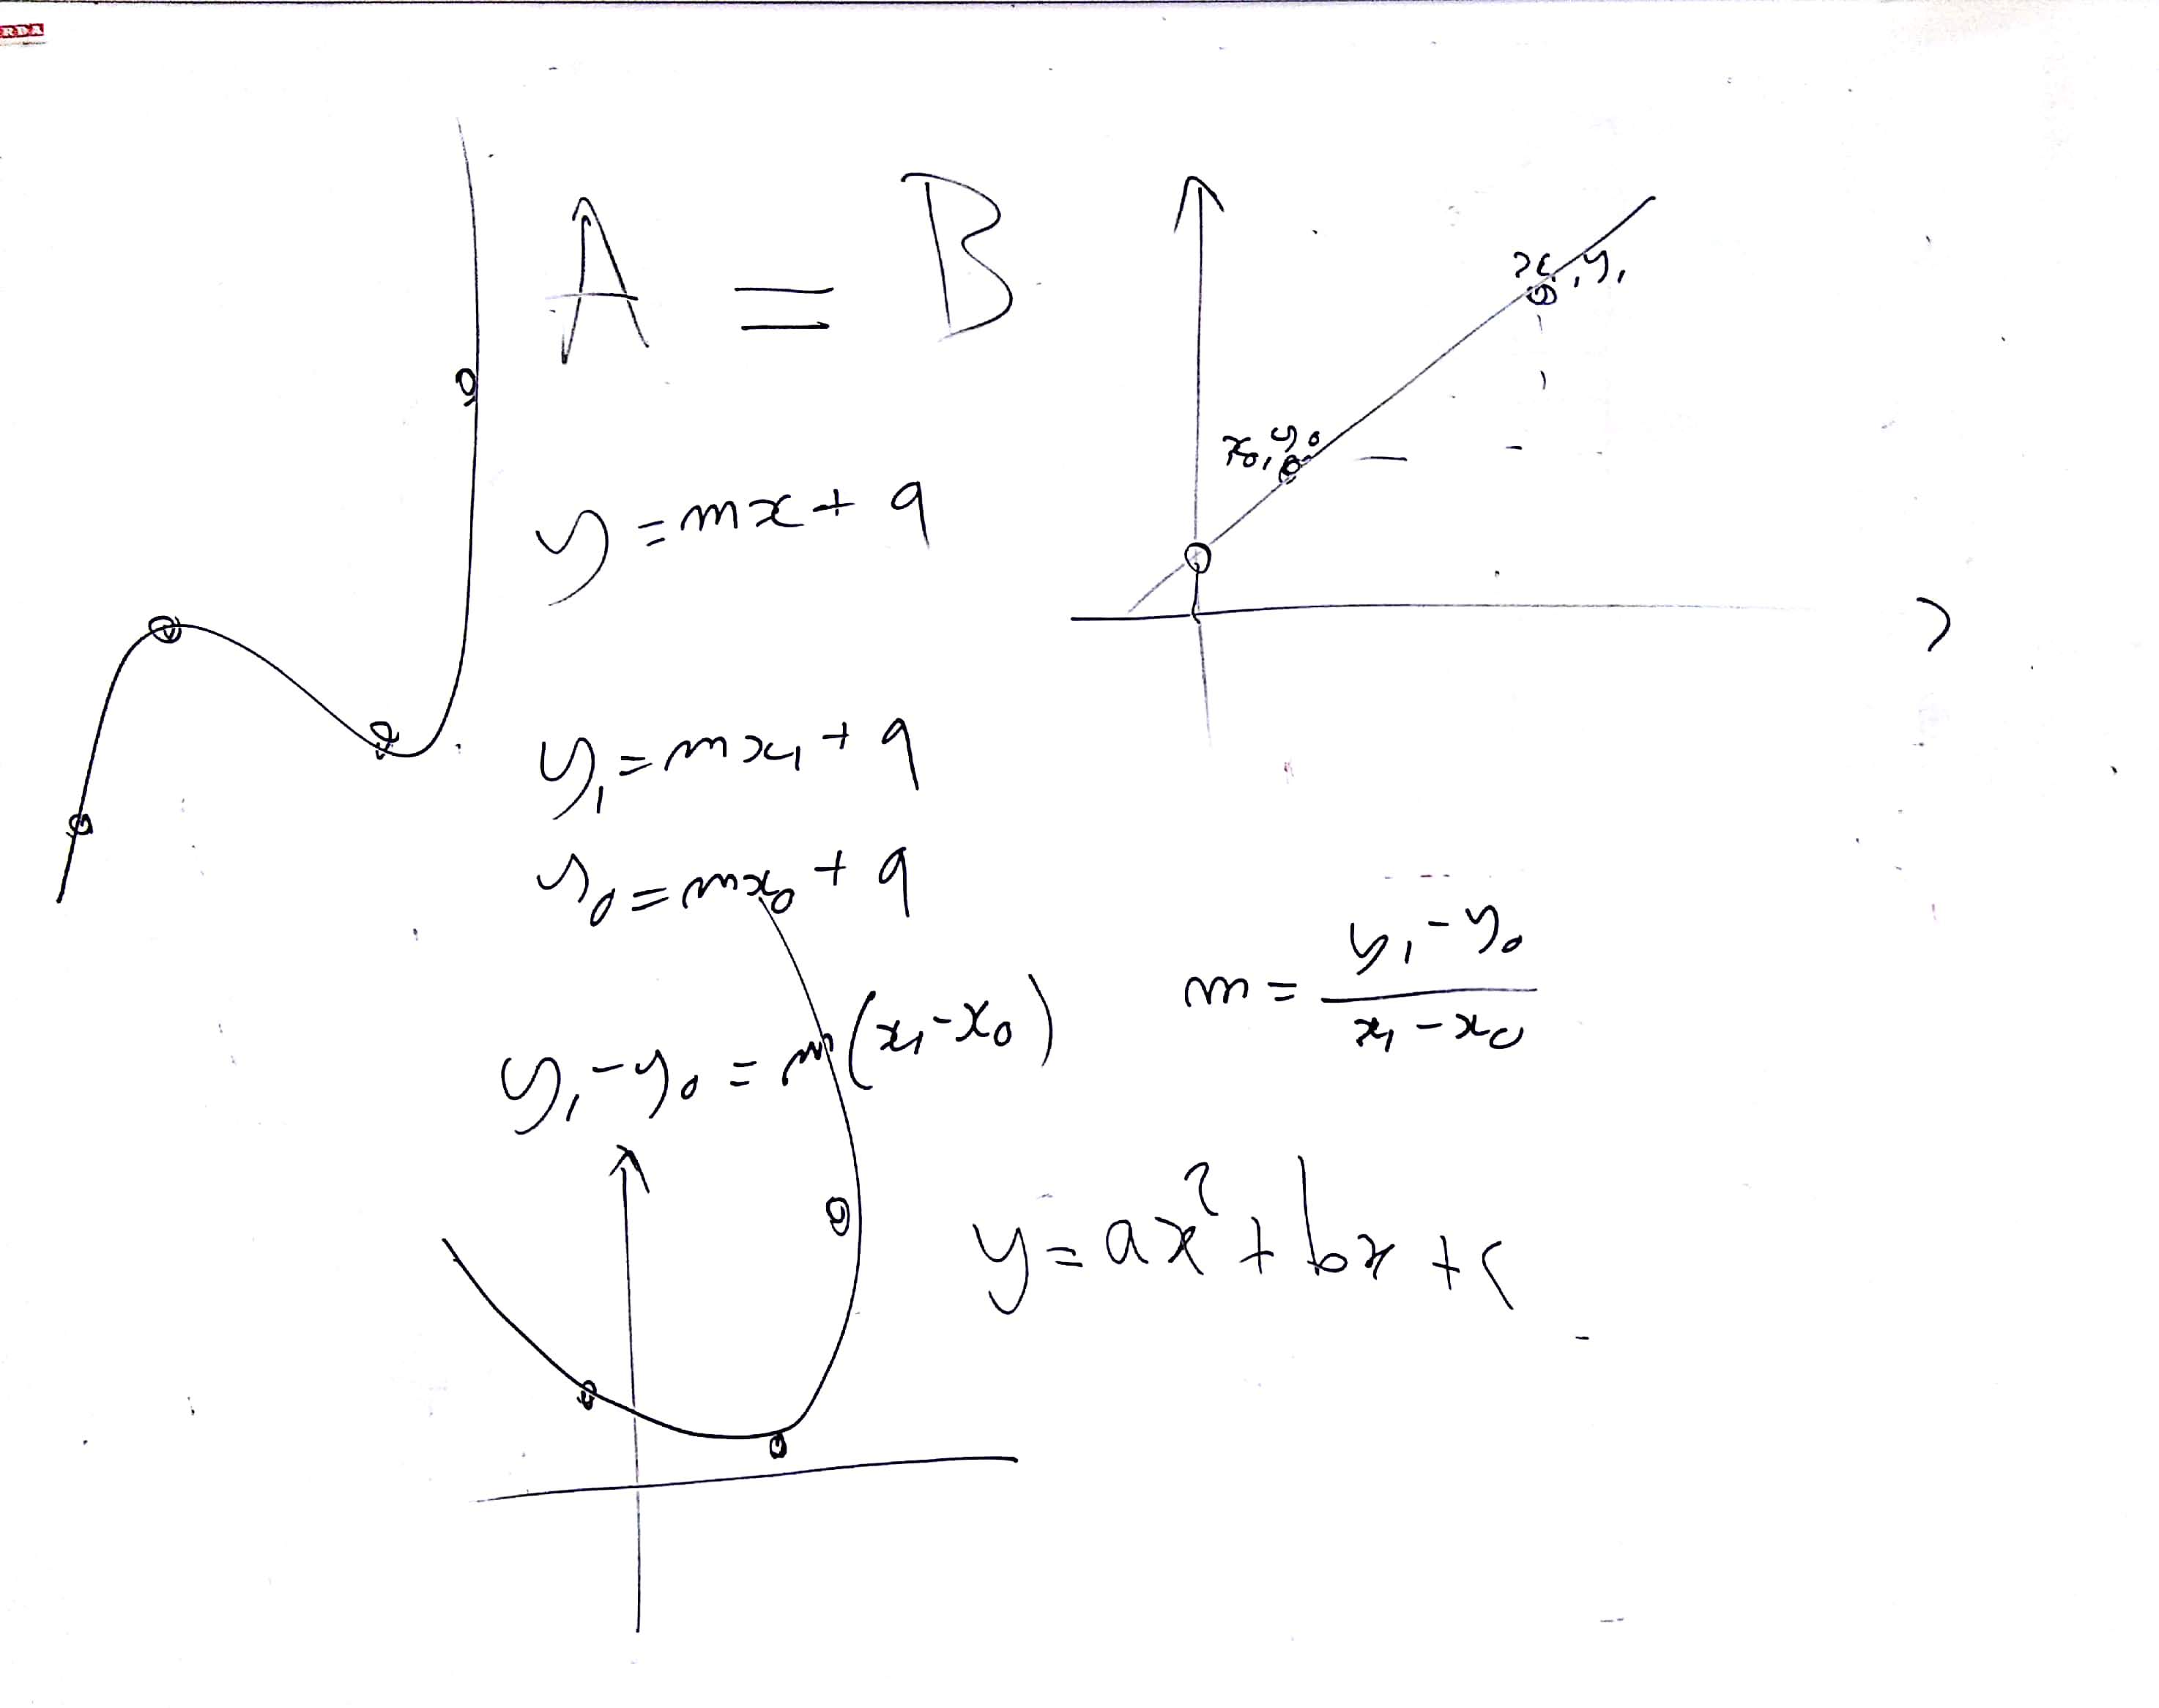 RDA
A = B
x₁, y₁
x₀, y₀
y = mx + q
y₁ = mx₁ + q
y₀ = mx₀ + q
y₁ - y₀ = m(x₁ - x₀)
m = (y₁ - y₀) / (x₁ - x₀)
y = ax² + bx + c